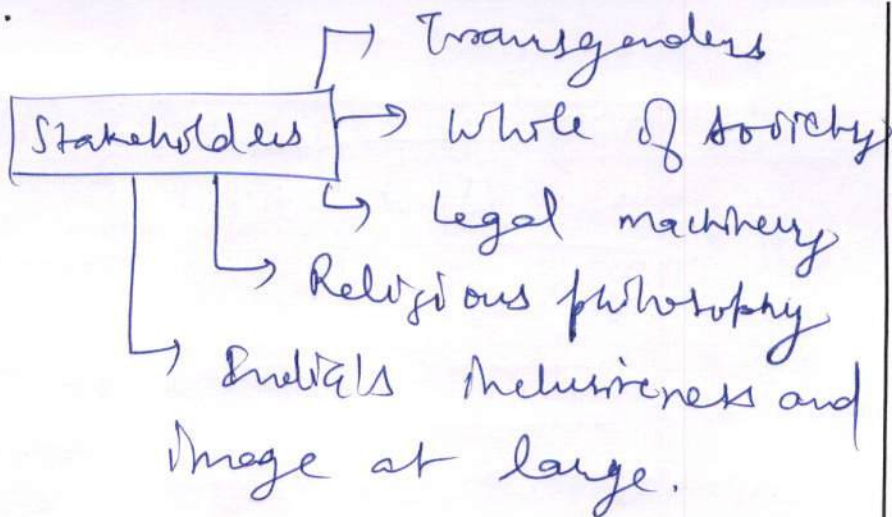 Transgenders
Stakeholders
Whole of society
Legal machinery
Religious philosophy
India's inclusiveness and
image at large.